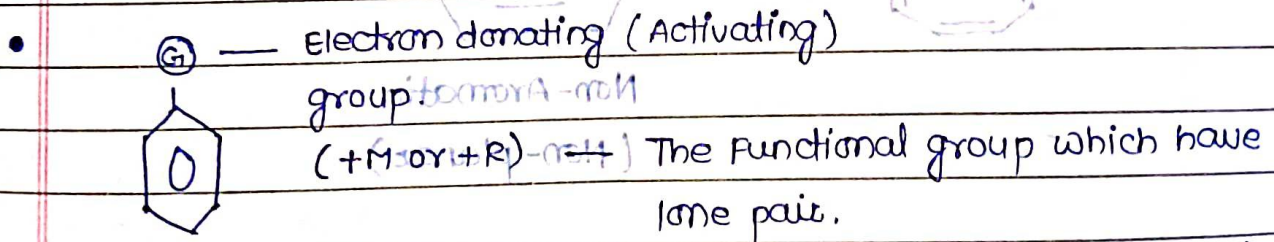 • G — Electron donating (Activating)
group.
(+M or +R) → The Functional group which have
lone pair.